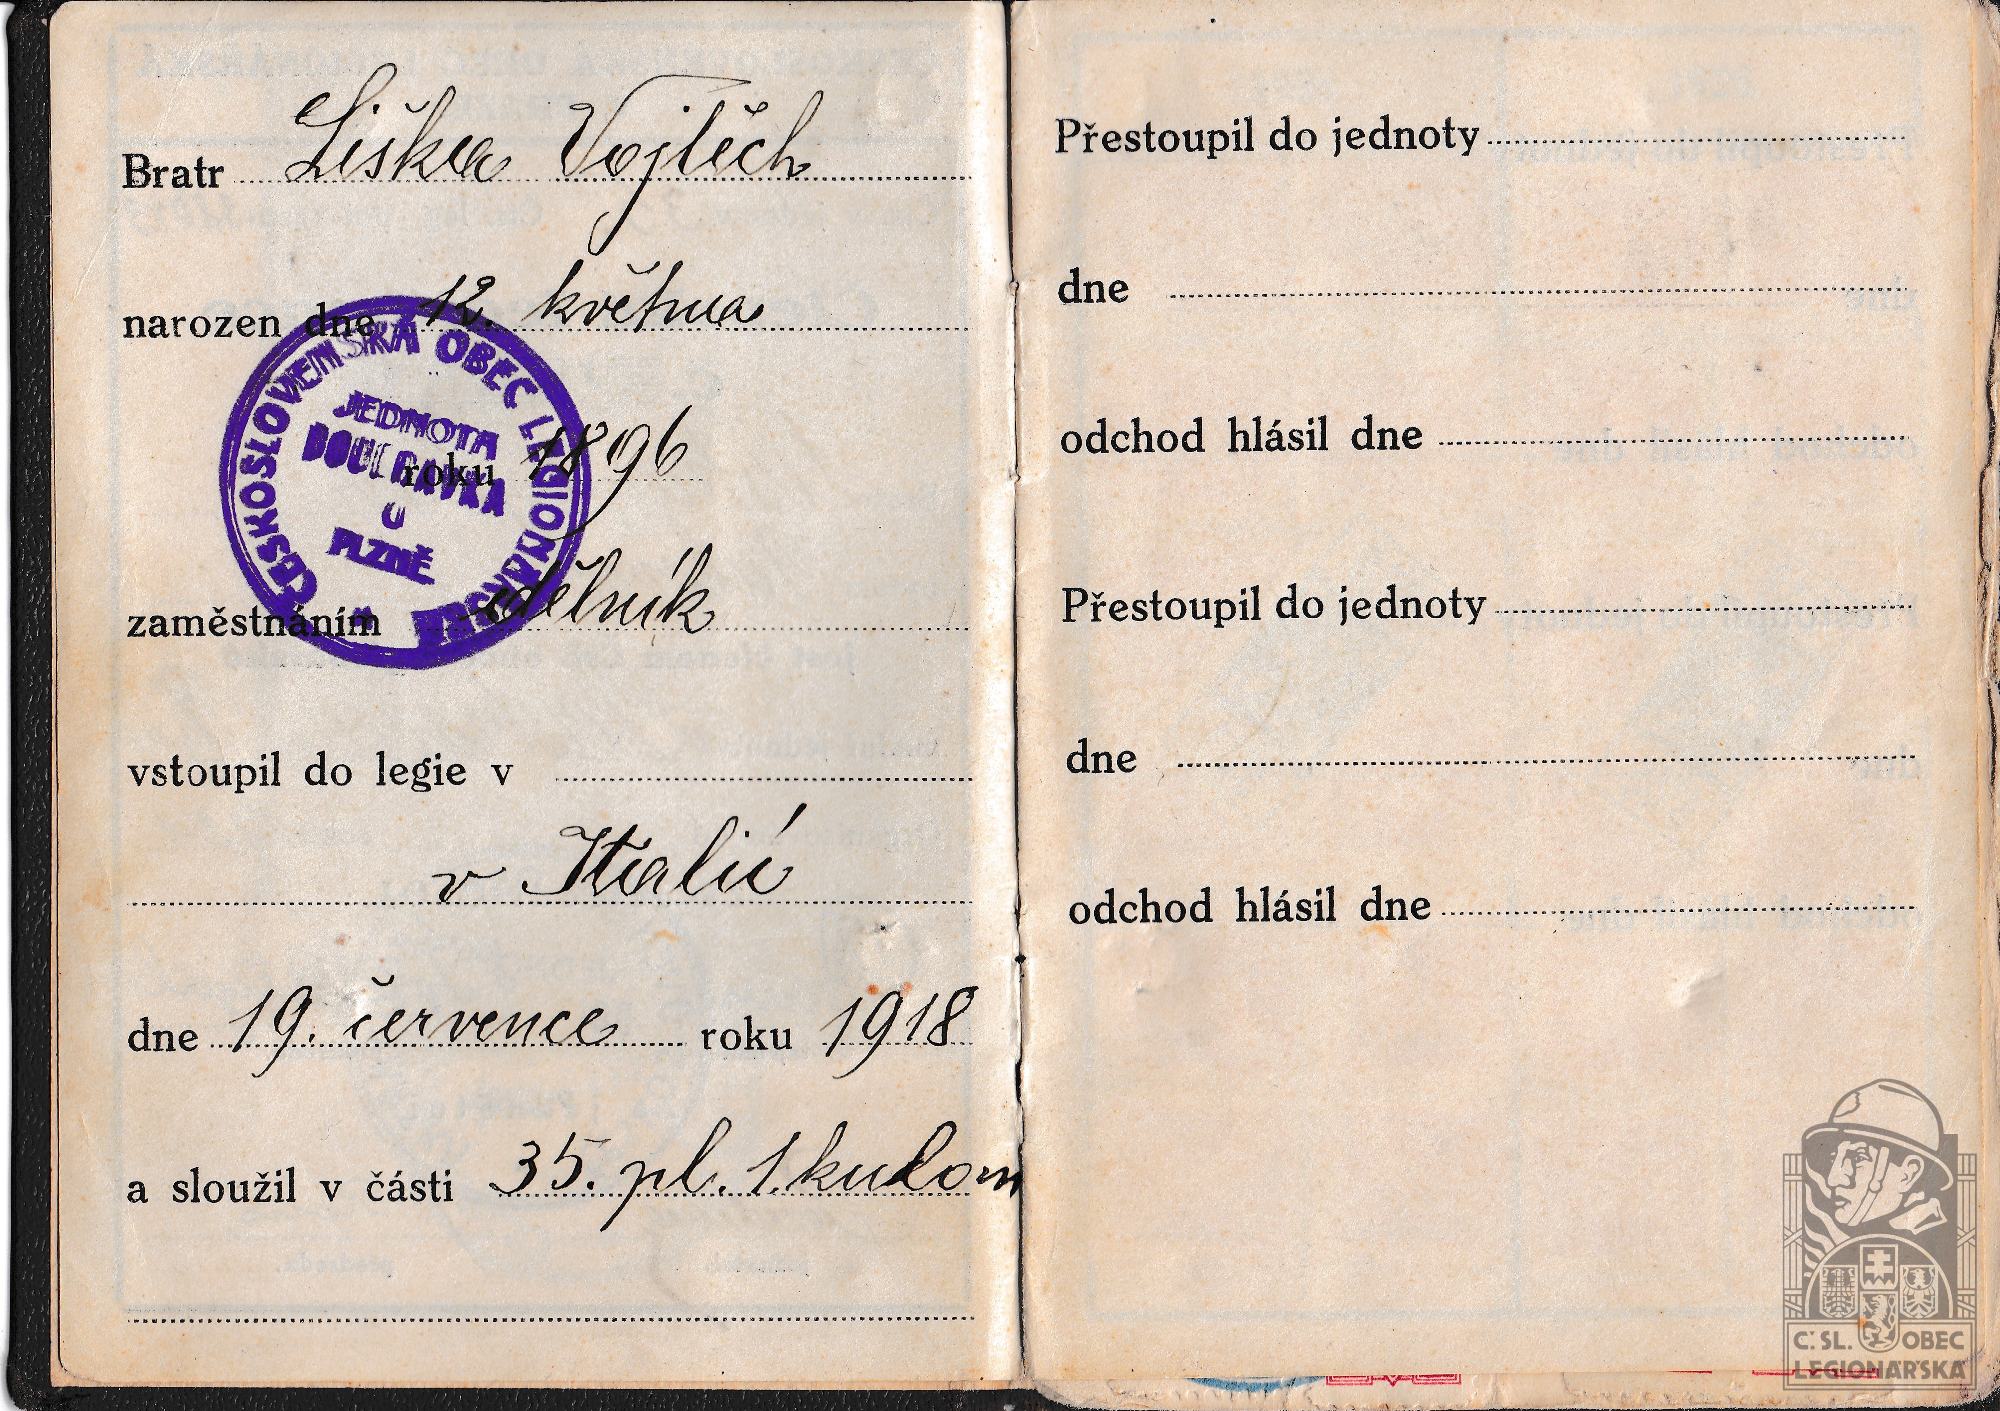 Bratr Liška Vojtěch
narozen dne 12. května
roku 1896
zaměstnáním dělník
vstoupil do legie v
v Italii
dne 19. července roku 1918
a sloužil v části 35. pl. 1. kulom
ČESKOSLOVENSKÁ OBEC LEGIONÁŘSKÁ
JEDNOTA
DOUBRAVKA
U
PLZNĚ
Přestoupil do jednoty
dne
odchod hlásil dne
Přestoupil do jednoty
dne
odchod hlásil dne
Č. SL. OBEC
LEGIONÁŘSKÁ